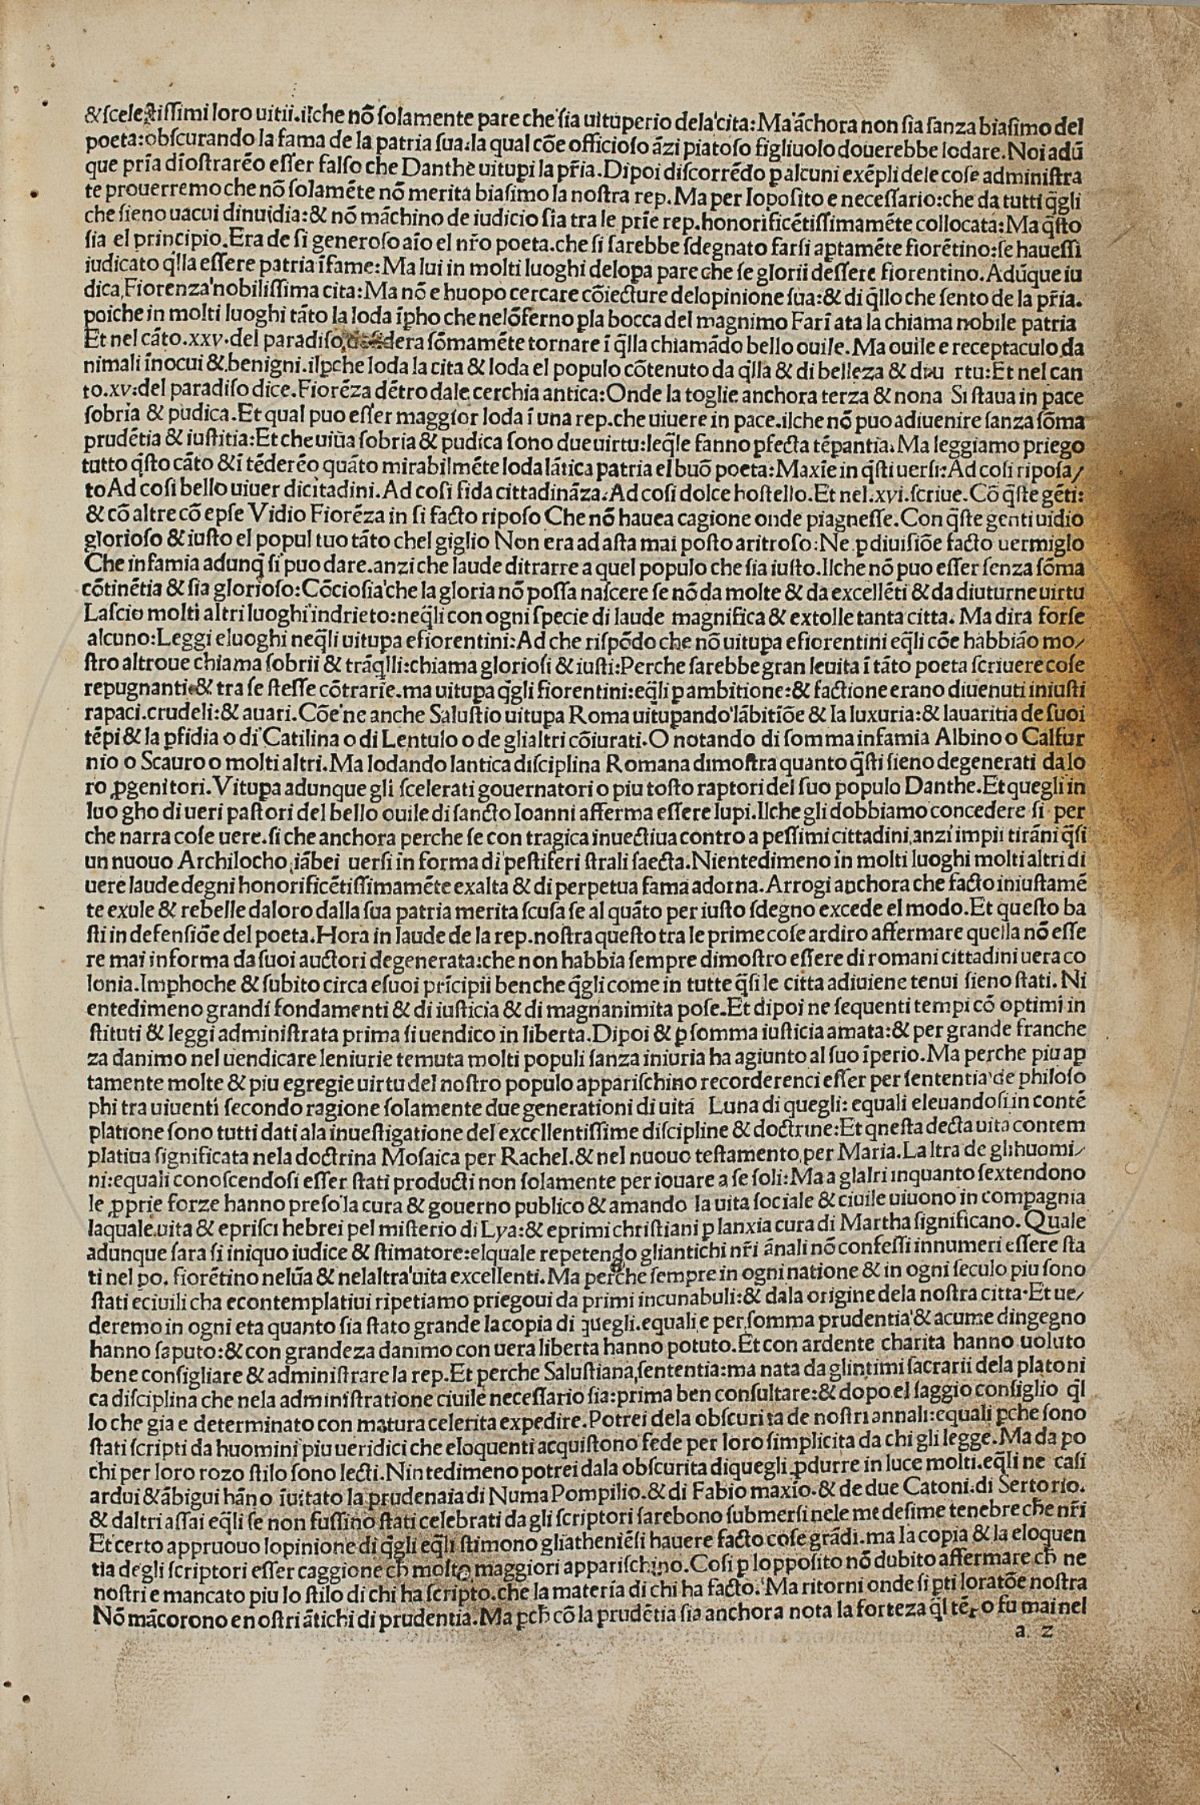 &sceleſtiſſimi loro uitii.ilche nõ ſolamente pare che ſia uituperio dela cita:Ma ãchora non ſia ſanza biaſimo del
poeta:obſcurando la fama de la patria ſua.la qual cõe officioſo ãzi piatoſo figliuolo douerebbe lodare.Noi adũ
que pr̃ia dĩoſtrarẽo eſſer falſo che Danthe uitupi la pr̃ia.Dipoi diſcorrẽdo ꝑ alcuni exẽpli dele coſe adminiſtra
te prouerremo che nõ ſolamẽte nõ merita biaſimo la noſtra rep.Ma per lopoſito e neceſſario:che da tutti q̃gli
che ſieno uacui dinuidia:& nõ mãchino de iudicio ſia tra le prĩe rep.honorificẽtiſſimamẽte collocata:Ma q̃ſto
ſia el principio.Era de ſi generoſo aĩo el nr̃o poeta.che ſi ſarebbe ſdegnato farſi aptamẽte fiorẽtino:ſe haueſſi
iudicato q̃lla eſſere patria ĩfame:Ma lui in molti luoghi delopa pare che ſe glorii deſſere fiorentino.Adũque iu
dica Fiorenza nobiliſſima cita:Ma nõ e huopo cercare cõiecture delopinione ſua:& di q̃llo che ſento de la pr̃ia.
poiche in molti luoghi tãto la loda ĩpho che nelõferno ꝑla bocca del magnimo Farĩ ata la chiama nobile patria
Et nel cãto.xxv.del paradiſo deſidera ſõmamẽte tornare ĩ q̃lla chiamãdo bello ouile.Ma ouile e receptaculo da
nimali ĩnocui & benigni.ilꝑche loda la cita & loda el populo cõtenuto da q̃lla & di belleza & du rtu:Et nel can
to.xv.del paradiſo dice.Fiorẽza dẽtro dale cerchia antica:Onde la toglie anchora terza & nona Si ſtaua in pace
ſobria & pudica.Et qual puo eſſer maggior loda ĩ una rep.che uiuere in pace.ilche nõ puo adiuenire ſanza ſõma
prudẽtia & iuſtitia:Et che uiua ſobria & pudica ſono due uirtu:leq̃le fanno ꝑfecta tẽpantia.Ma leggiamo priego
tutto q̃ſto cãto & ĩ tẽderẽo quãto mirabilmẽte loda lãtica patria el buõ poeta:Maxĩe in q̃ſti uerſi:Ad coſi ripoſa/
to Ad coſi bello uiuer di citadini.Ad coſi fida cittadinãza.Ad coſi dolce hoſtello.Et nel.xvi.ſcriue.Cõ q̃ſte gẽti:
& cõ altre cõ epſe Vidio Fiorẽza in ſi facto ripoſo Che nõ hauea cagione onde piagneſſe.Con q̃ſte genti uidio
glorioſo & iuſto el popul tuo tãto chel giglio Non era ad aſta mai poſto aritroſo:Ne ꝑ diuiſiõe facto uermiglo
Che infamia adunq̃ ſi puo dare.anzi che laude ditrarre a quel populo che ſia iuſto.Ilche nõ puo eſſer ſenza ſõma
cõtinẽtia & ſia glorioſo:Cõcioſia che la gloria nõ poſſa naſcere ſe nõ da molte & da excellẽti & da diuturne uirtu
Laſcio molti altri luoghi indrieto:neq̃li con ogni ſpecie di laude magnifica & extolle tanta citta. Ma dira forſe
alcuno:Leggi e luoghi neq̃li uitupa e fiorentini:Ad che riſpõdo che nõ uitupa e fiorentini eq̃li cõe habbião mo/
ſtro altroue chiama ſobrii & trãq̃lli:chiama glorioſi & iuſti:Perche ſarebbe gran leuita ĩ tãto poeta ſcriuere coſe
repugnanti & tra ſe ſteſſe cõtrarie.ma uitupa q̃gli fiorentini:eq̃li ꝑ ambitione:& factione erano diuenuti iniuſti
rapaci.crudeli:& auari.Cõe ne anche Saluſtio uitupa Roma uituꝑando lãbitiõe & la luxuria:& lauaritia de ſuoi
tẽpi & la ꝑfidia o di Catilina o di Lentulo o de gli altri cõiurati.O notando di ſomma infamia Albino o Calfur
nio o Scauro o molti altri.Ma lodando lantica diſciplina Romana dimoſtra quanto q̃ſti ſieno degenerati da lo
ro ꝓgenitori.Vitupa adunque gli ſcelerati gouernatori o piu toſto raptori del ſuo populo Danthe.Et quegli in
luo gho di ueri paſtori del bello ouile di ſancto Ioanni afferma eſſere lupi.Ilche gli dobbiamo concedere ſi per
che narra coſe uere.ſi che anchora perche ſe con tragica inuectiua contro a peſſimi cittadini anzi impii tirãni q̃ſi
un nuouo Archilocho iãbei uerſi in forma di peſtiferi ſtrali ſaecta.Nientedimeno in molti luoghi molti altri di
uere laude degni honorificẽtiſſimamẽte exalta & di perpetua fama adorna.Arrogi anchora che facto iniuſtamẽ
te exule & rebelle da loro dalla ſua patria merita ſcuſa ſe al quãto per iuſto ſdegno excede el modo.Et queſto ba
ſti in defenſiõe del poeta.Hora in laude de la rep.noſtra queſto tra le prime coſe ardiro affermare quella nõ eſſe
re mai in forma da ſuoi auctori degenerata:che non habbia ſempre dimoſtro eſſere di romani cittadini uera co
lonia.Imphoche & ſubito circa e ſuoi prĩcipii benche q̃gli come in tutte q̃ſi le citta adiuiene tenui ſieno ſtati. Ni
entedimeno grandi fondamenti & di iuſticia & di magnanimita poſe.Et dipoi ne ſequenti tempi cõ optimi in
ſtituti & leggi adminiſtrata prima ſi uendico in liberta.Dipoi & ꝑ ſomma iuſticia amata:& per grande franche
za danimo nel uendicare leniurie temuta molti populi ſanza iniuria ha agiunto al ſuo ĩperio.Ma perche piu ap
tamente molte & piu egregie uirtu del noſtro populo appariſchino recorderenci eſſer per ſententia de philoſo
phi tra uiuenti ſecondo ragione ſolamente due generationi di uita Luna di quegli: equali eleuandoſi in contẽ
platione ſono tutti dati ala inueſtigatione del excellentiſſime diſcipline & doctrine:Et qneſta decta uita contem
platiua ſignificata nela doctrina Moſaica per Rachel.& nel nuouo teſtamento per Maria.La ltra de gli huomi/
ni:equali conoſcendoſi eſſer ſtati producti non ſolamente per iouare a ſe ſoli:Ma a glalri inquanto ſextendono
le ꝓprie forze hanno preſo la cura & gouerno publico & amando la uita ſociale & ciuile uiuono in compagnia
laquale uita & e priſci hebrei pel miſterio di Lya:& e primi chriſtiani ꝑ lanxia cura di Martha ſignificano. Quale
adunque ſara ſi iniquo iudice & ſtimatore:elquale repetendo gliantichi nr̃i ãnali nõ confeſſi innumeri eſſere ſta
ti nel po. fiorẽtino neluã & nelaltra uita excellenti.Ma perche ſempre in ogni natione & in ogni ſeculo piu ſono
ſtati e ciuili cha e contemplatiui ripetiamo priegoui da primi incunabuli:& dala origine dela noſtra citta.Et ue/
deremo in ogni eta quanto ſia ſtato grande la copia di quegli.equali e per ſomma prudentia & acume dingegno
hanno ſaputo:& con grandeza danimo con uera liberta hanno potuto.Et con ardente charita hanno uoluto
bene conſigliare & adminiſtrare la rep.Et perche Saluſtiana ſententia:ma nata da glintimi ſacrarii dela platoni
ca diſciplina che nela adminiſtratione ciuile neceſſario ſia:prima ben conſultare:& dopo el ſaggio conſiglio q̃l
lo che gia e determinato con matura celerita expedire.Potrei dela obſcurita de noſtri annali:equali ꝑche ſono
ſtati ſcripti da huomini piu ueridici che eloquenti acquiſtono fede per loro ſimplicita da chi gli legge.Ma da po
chi per loro rozo ſtilo ſono lecti.Nintedimeno potrei dala obſcurita di quegli ꝓdurre in luce molti.eq̃li ne caſi
ardui & ãbigui hãno ĩuitato la prudenaia di Numa Pompilio.& di Fabio maxĩo.& de due Catoni.di Sertorio.
& daltri aſſai eq̃li ſe non fuſſino ſtati celebrati da gli ſcriptori ſarebono ſubmerſi nele medeſime tenebre che nr̃i
Et certo appruouo lopinione di q̃gli eq̃li ſtimono gliatheniẽſi hauere facto coſe grãdi.ma la copia & la eloquen
tia degli ſcriptori eſſer caggione ch̃ molto maggiori appariſchino.Coſi ꝑ loppoſito nõ dubito affermare ch̃ ne
noſtri e mancato piu lo ſtilo di chi ha ſcripto.che la materia di chi ha facto. Ma ritorni onde ſi ꝑti loratõe noſtra
Nõ mãcorono e noſtri ãtichi di prudentia.Ma ꝑch̃ cõ la prudẽtia ſia anchora nota la forteza q̃l tẽꝑo fu mai nel
a 2